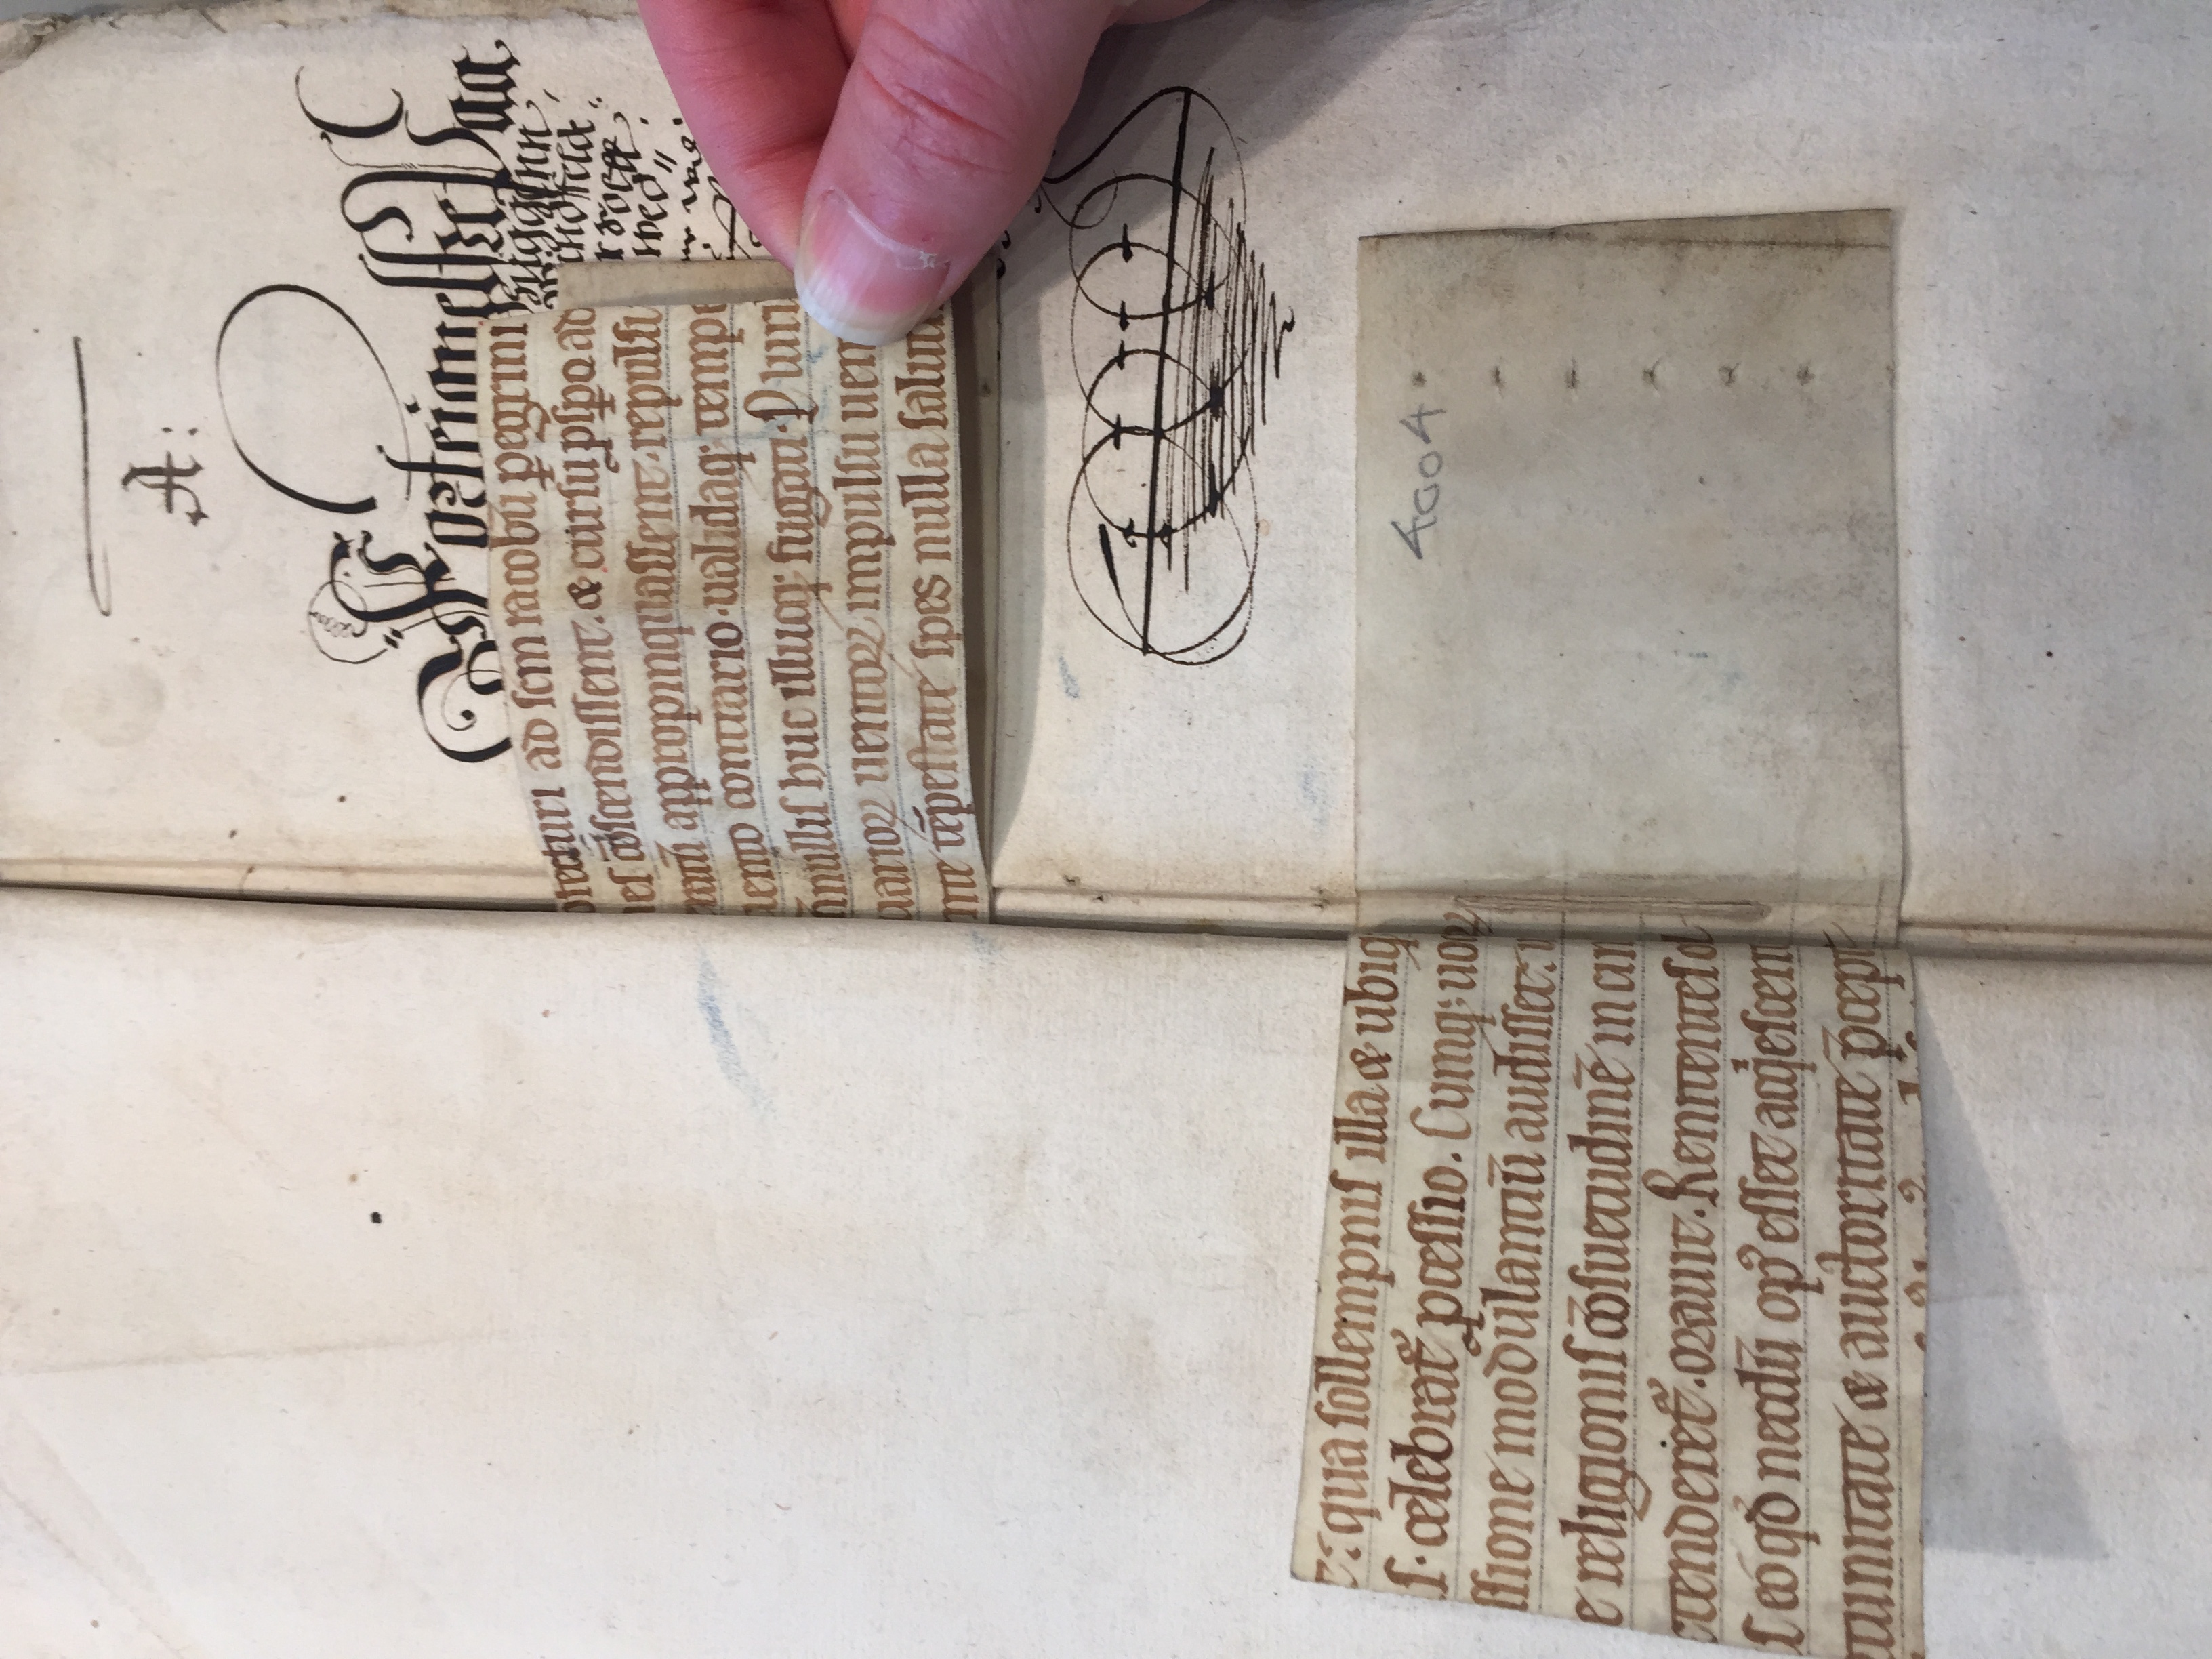 A:
Forteignelsze Paa
otecturi ad scm iacobū ꝑegrini
es cōscendissent. & cursu ꝓsꝑo ad
ratū appropinquassent. repulsi
uento contrario. ualidaq; tempe
nnullis huc illucq; fugati. Pluri
uarioꝝ uentoꝝ impulsu uen
nte tēpestate spes nulla saluti
c: qua sollempnis illa & ubiq
s. celebrat᷑ ꝓcessio. Cumq; uoꝝ
ssione modulantiū audisset:
e religionis cōsuetudinē in
tenderet᷑. orauit. Renitentes
s eo qđ necdū opꝰ esset acqͥescent
tunitate & auctoritate p̄cept
4004.